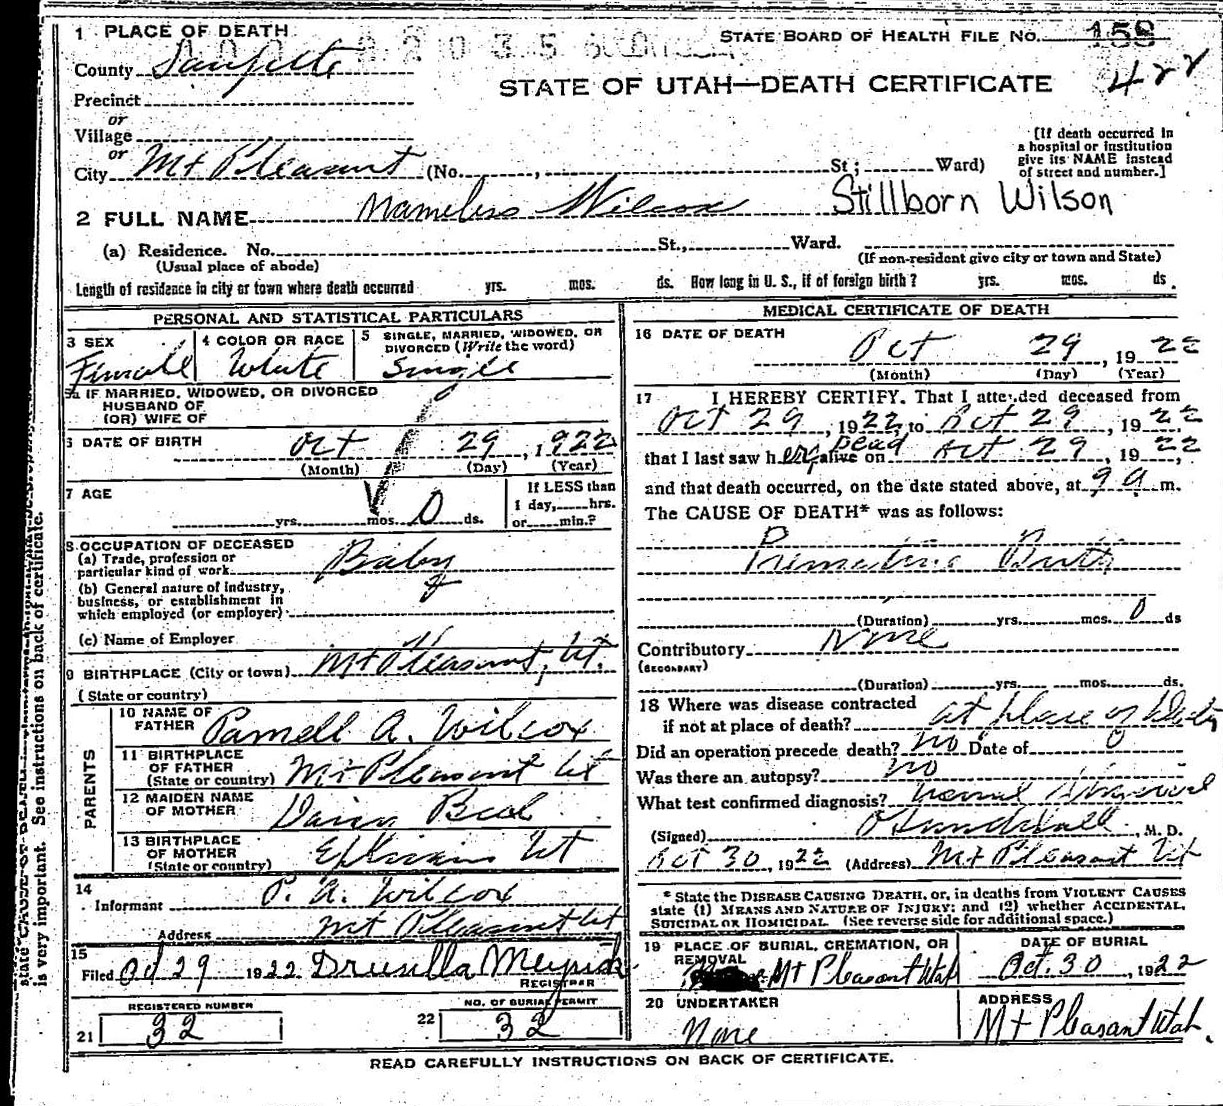 1 PLACE OF DEATH
STATE BOARD OF HEALTH FILE NO. 158
County Sanpete
422
STATE OF UTAH—DEATH CERTIFICATE
Precinct
or
Village
or
City Mt Pleasant (No. , St; Ward)
[If death occurred in
a hospital or institution
give its NAME instead
of street and number.]
2 FULL NAME Nameless Wilcox Stillborn Wilson
(a) Residence. No. St., Ward.
(Usual place of abode) (If non-resident give city or town and State)
Length of residence in city or town where death occurred yrs. mos. ds. How long in U. S., if of foreign birth? yrs. mos. ds.
PERSONAL AND STATISTICAL PARTICULARS
3 SEX
Female
4 COLOR OR RACE
White
5 SINGLE, MARRIED, WIDOWED, OR
DIVORCED (Write the word)
Single
5a IF MARRIED, WIDOWED, OR DIVORCED
HUSBAND OF
(OR) WIFE OF
6 DATE OF BIRTH Oct 29, 1922
(Month) (Day) (Year)
7 AGE
yrs. mos. 0 ds.
If LESS than
1 day, hrs.
or min.?
8 OCCUPATION OF DECEASED
(a) Trade, profession or
particular kind of work Baby
(b) General nature of industry,
business, or establishment in
which employed (or employer)
(c) Name of Employer
9 BIRTHPLACE (City or town) Mt Pleasant, Ut.
(State or country)
PARENTS
10 NAME OF
FATHER Parnell A. Wilcox
11 BIRTHPLACE
OF FATHER
(State or country) Mt Pleasant Ut
12 MAIDEN NAME
OF MOTHER
13 BIRTHPLACE
OF MOTHER
(State or country) Ephraim Ut
14
Informant P. A. Wilcox
Address Mt Pleasant Ut
15
Filed Oct 29 1922 Drusilla
REGISTRAR
REGISTERED NUMBER
21 32
NO. OF BURIAL PERMIT
22 32
MEDICAL CERTIFICATE OF DEATH
16 DATE OF DEATH
Oct 29, 1922
(Month) (Day) (Year)
17 I HEREBY CERTIFY, That I attended deceased from
Oct 29, 1922, to Oct 29, 1922
Dead
that I last saw her alive on Oct 29, 1922,
and that death occurred, on the date stated above, at 9 a m.
The CAUSE OF DEATH* was as follows:
Premature Birth
(Duration) yrs. mos. 0 ds
Contributory None
(SECONDARY)
(Duration) yrs. mos. ds.
18 Where was disease contracted
if not at place of death? at place of
Did an operation precede death? no Date of 0
Was there an autopsy? no
What test confirmed diagnosis?
(Signed) , M. D.
Oct 30, 1922 (Address) Mt Pleasant Ut
* State the DISEASE CAUSING DEATH, or, in deaths from VIOLENT CAUSES
state (1) MEANS AND NATURE OF INJURY; and (2) whether ACCIDENTAL,
SUICIDAL OR HOMICIDAL. (See reverse side for additional space.)
19 PLACE OF BURIAL, CREMATION, OR
REMOVAL
Mt Pleasant Utah
DATE OF BURIAL
Oct. 30, 1922
20 UNDERTAKER
None
ADDRESS
Mt Pleasant Utah.
READ CAREFULLY INSTRUCTIONS ON BACK OF CERTIFICATE.
is very important. See instructions on back of certificate.